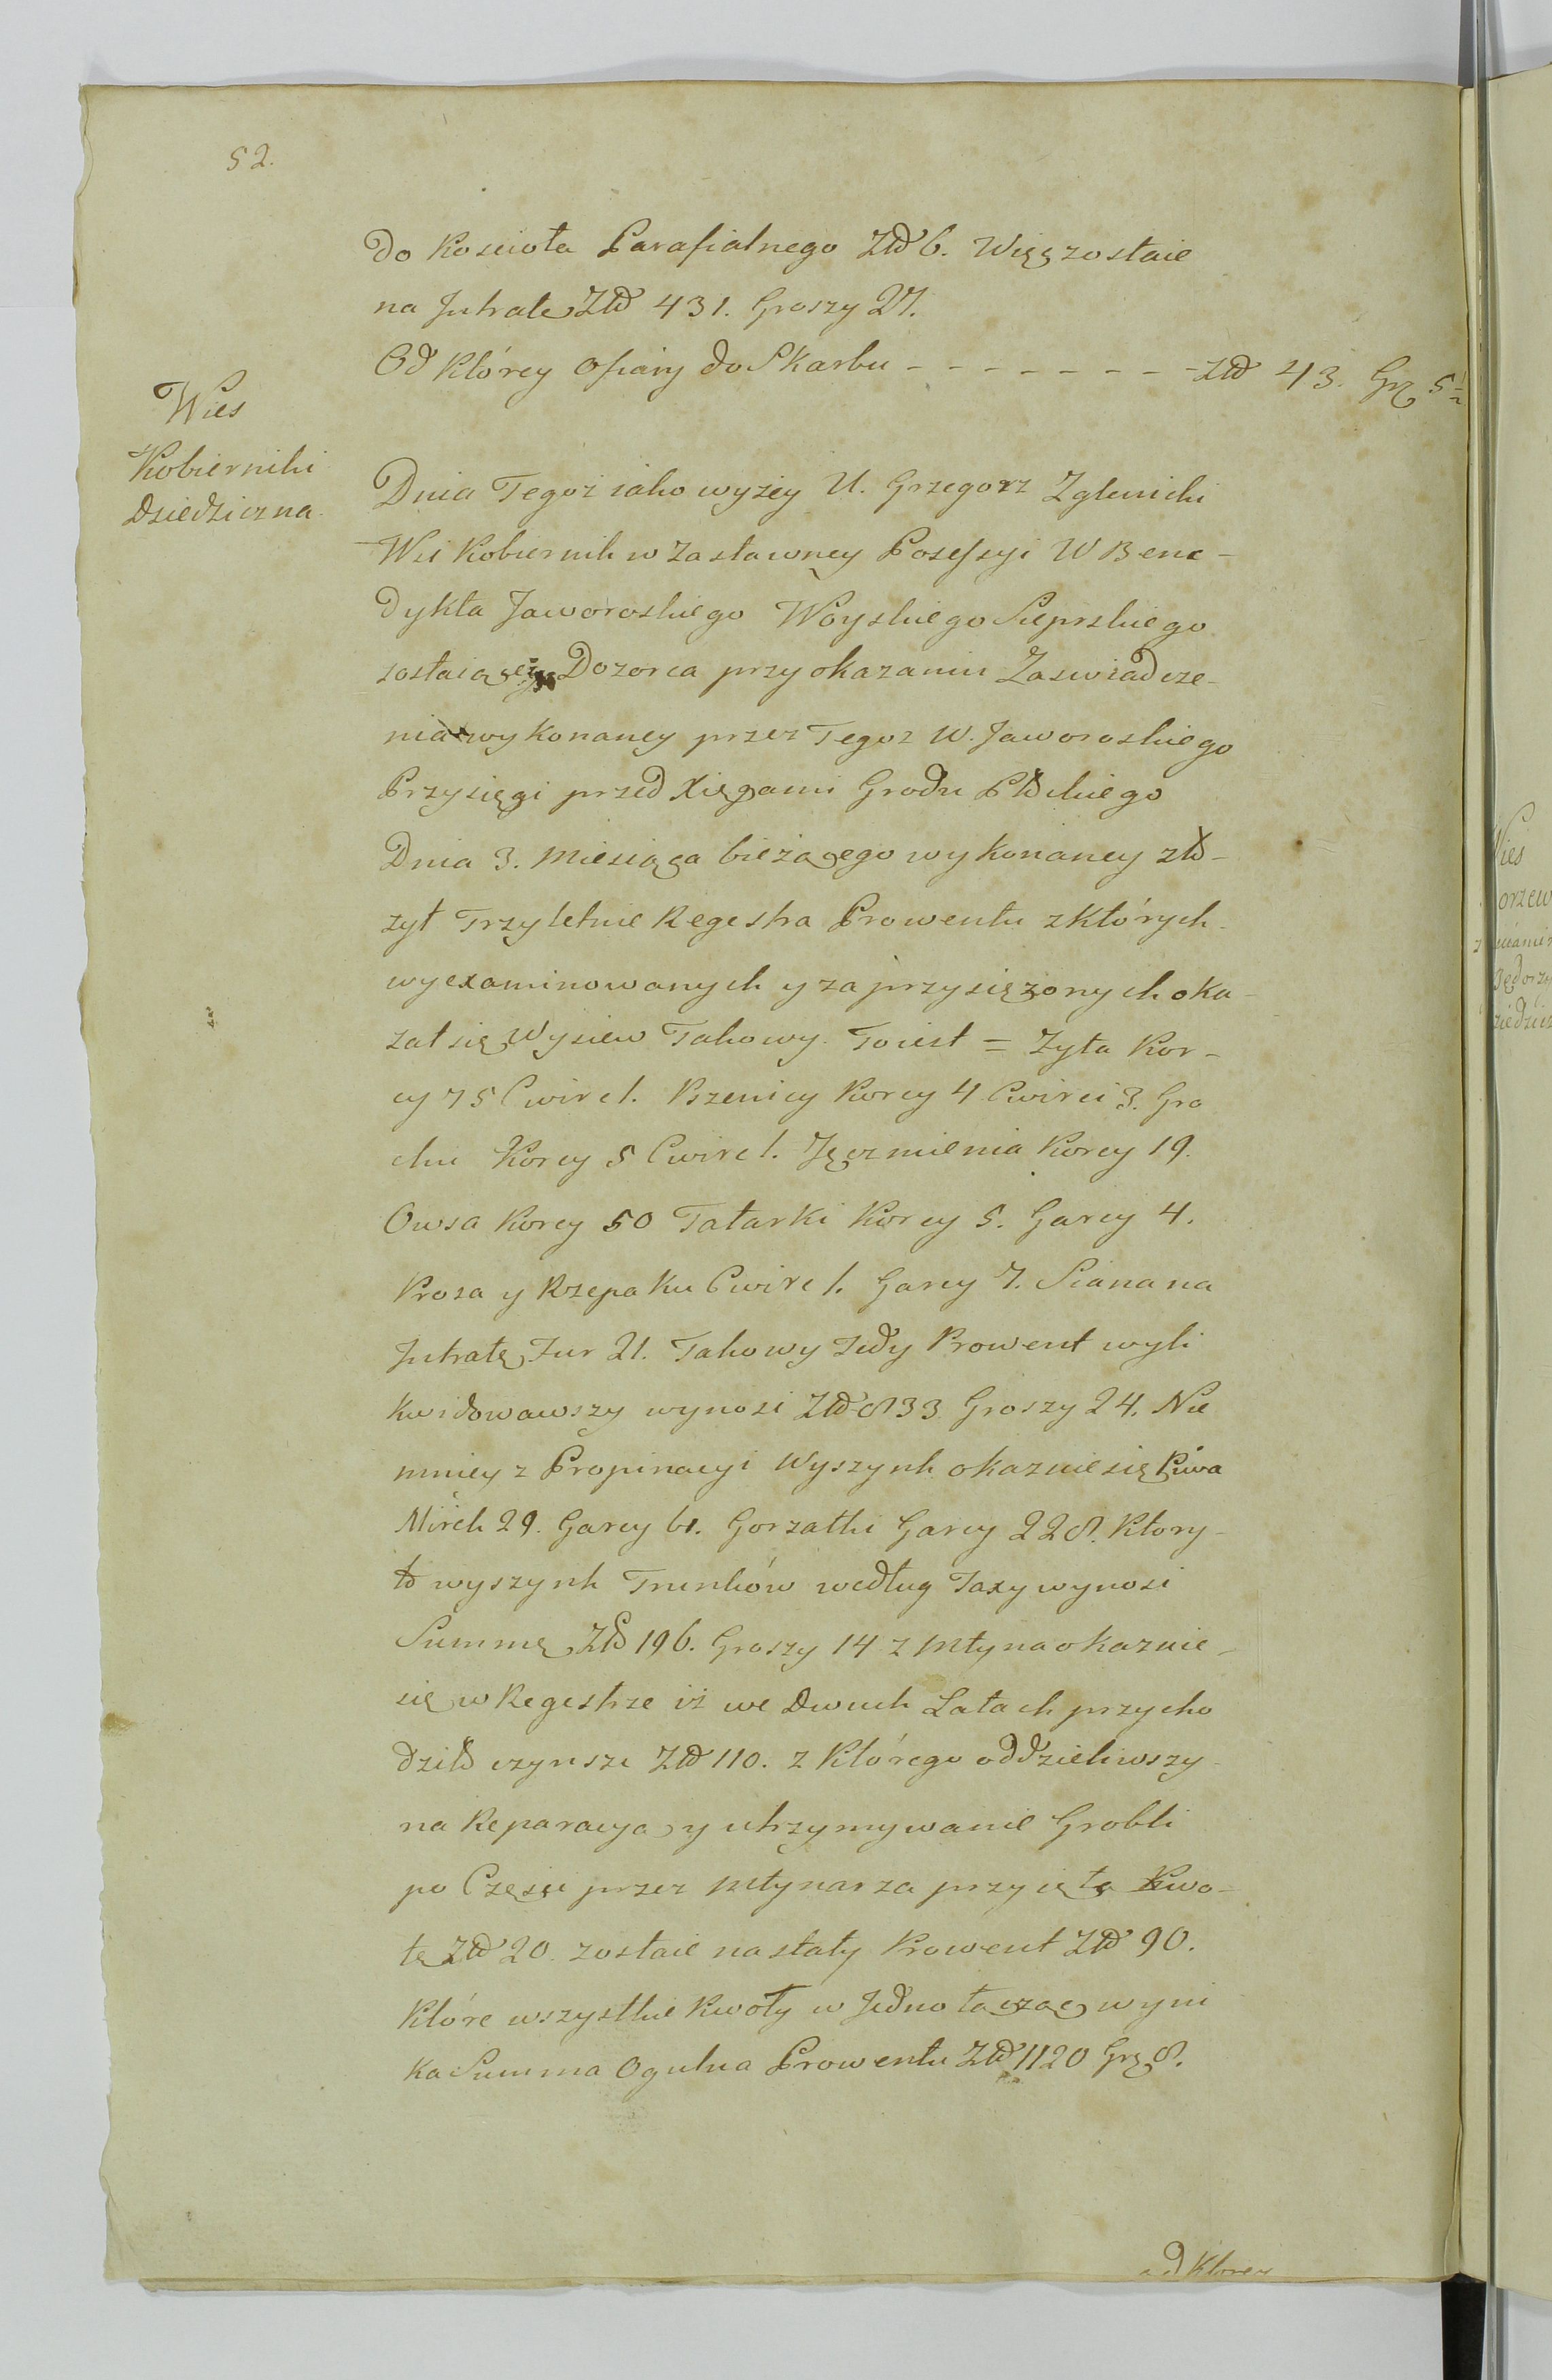 52.
do Koscioła Parafialnego Złđ 6. Więc zostaie
na Jntratę Złđ 431. Groszy 27.
Od Którey Ofiary do Skarbu - - - - - - - - Złđ 43. Gr 5½
Wies
Kobierniki
Dziedziczna
Dnia Tegoż iako wyżey U. Grzegorz Zglenicki
Wsi Kobiernik w Zastawney Posessyi W Bene-
dykta Jaworoskiego Woyskiego Sieprskiego
zostaiącey Dozorca przy okazaniu Zaswiadcze-
nia wykonaney przez Tegoz W. Jaworoskiego
Przysięgi przed Xięgami Grodu Płđckiego
Dnia 3. Miesiąca bieżącego wykonaney zło-
zył Trzyletnie Regestra Prowentu z których
wyexaminowanych y zaprzysiężonych oka-
zał się Wysiew Takowy. Toiest = Zyta Kor-
cy 75 Cwirc 1. Pszenicy Korcy 4 Cwirci 3. Gro
chu Korcy 5 Cwirc 1. Jęczmienia Korcy 19.
Owsa Korcy 50 Tatarki Korcy 5. Garcy 4.
Prosa y Rzepaku Cwirc 1. Garcy 7. Siana na
Jntratę Fur 21. Takowy Tedy Prowent wyli
kwidowawszy wynosi Złđ 833 Groszy 24. Nie
mniey z Propinacyi Wyszynk okazuie się Piwa
Garcy 61. Gorzałki Garcy 228. Ktory-
to wyszynk Trunków według Taxy wynosi
Summę Złđ 196. Groszy 14 z Młyna okazuie-
się w Regestrze iż we Dwuch Latach przycho
dziło czynszu Złđ 110. z Którego oddzieliwszy
na Reparacyą y utrzymywanie Grobli
po Częsci przez Młynarza przyiętą Kwo-
tę Złđ 20. zostaie na stały Prowent Złđ 90.
Które wszystkie Kwoty w Jedno łącząc wyni
ka Summa Ogulna Prowentu Złđ 1120 Gr 8.
od Ktorey